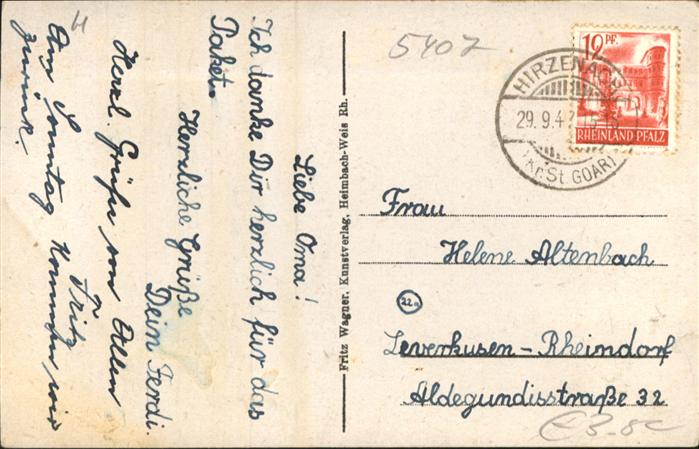 Liebe Oma!
Ich danke Dir herzlich für das
Paket.
Herzliche Grüße
Dein Ferdi.
Herzl. Grüße von Allen
Fritz
Am Sonntag kommen wir
zurück.
Fritz Wagner, Kunstverlag, Heimbach-Weis Rh.
5407
12 PF.
RHEINLAND-PFALZ
HIRZENACH
29.9.47
(Kr. St GOAR)
Frau
Helene Altenbach
22a
Leverkusen-Rheindorf
Aldegundisstraße 32